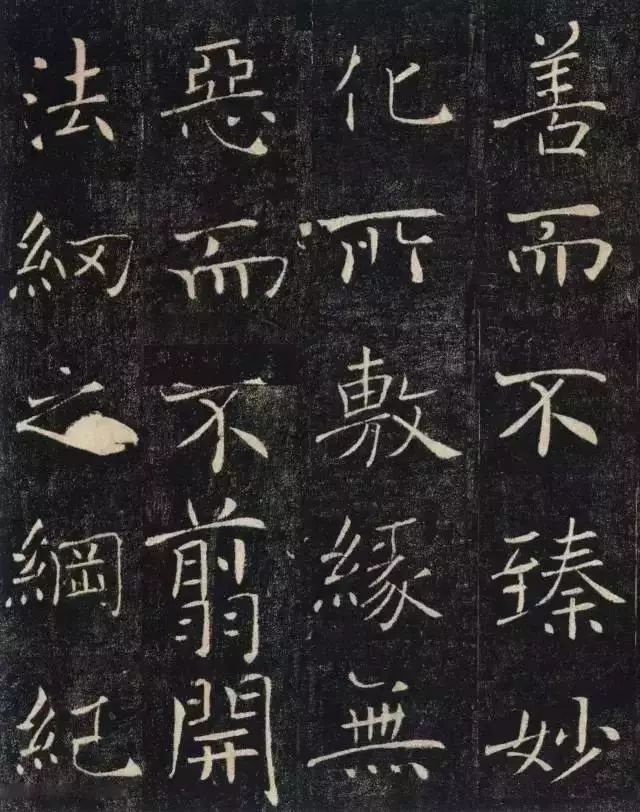 善而不臻妙
化所敷緣無
惡而不翦開
法網之綱紀